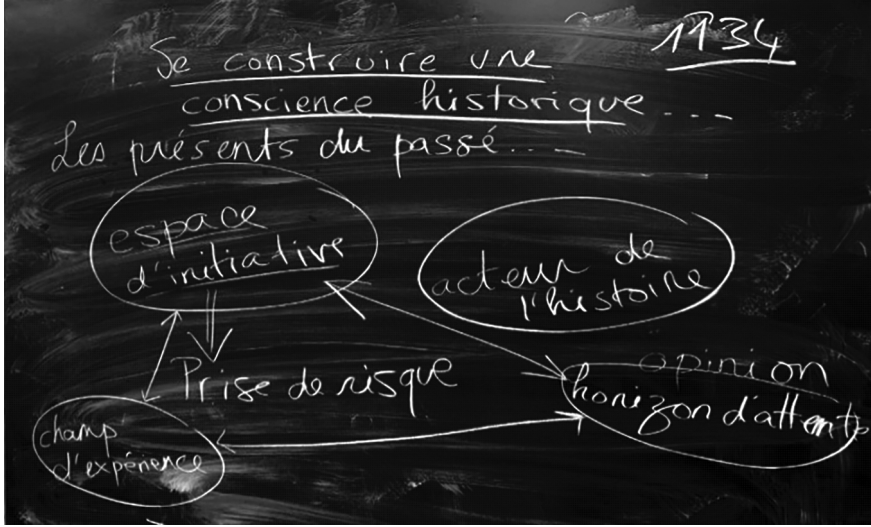 1134
Se construire une
conscience historique....
Les présents du passé....
espace
d'initiative
acteur de
l'histoire
Prise de risque
opinion
horizon d'attente
champ
d'expérience